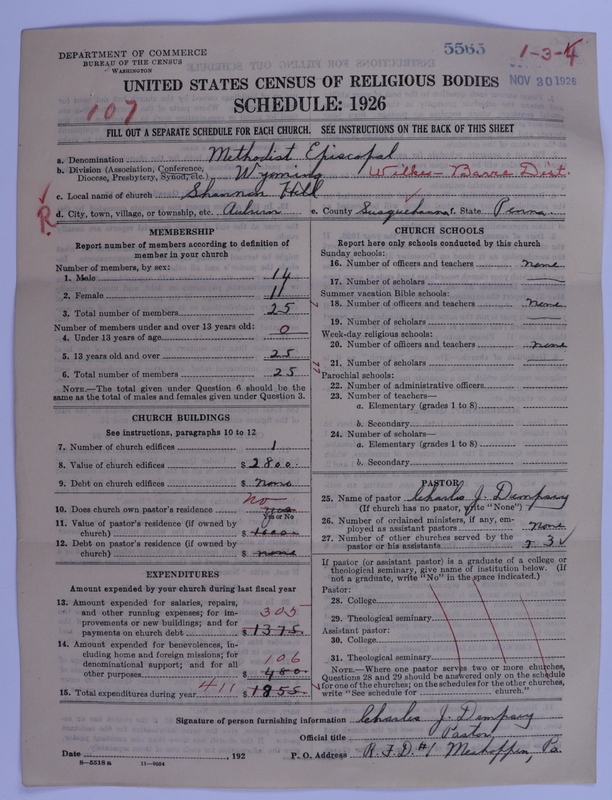 DEPARTMENT OF COMMERCE
BUREAU OF THE CENSUS
WASHINGTON
5565
1-3-4
NOV 30 1926
UNITED STATES CENSUS OF RELIGIOUS BODIES
SCHEDULE: 1926
107
FILL OUT A SEPARATE SCHEDULE FOR EACH CHURCH. SEE INSTRUCTIONS ON THE BACK OF THIS SHEET
a. Denomination Methodist Episcopal
b. Division (Association, Conference, Diocese, Presbytery, Synod, etc.) Wyoming Wilkes-Barre Dist.
c. Local name of church Shannon Hill
R d. City, town, village, or township, etc. Auburn e. County Susquehanna f. State Penna.
MEMBERSHIP
Report number of members according to definition of
member in your church
Number of members, by sex:
1. Male 14
2. Female 11
3. Total number of members 25
Number of members under and over 13 years old:
4. Under 13 years of age 0
5. 13 years old and over 25
6. Total number of members 25
NOTE.—The total given under Question 6 should be the
same as the total of males and females given under Question 3.
CHURCH BUILDINGS
See instructions, paragraphs 10 to 12
7. Number of church edifices 1
8. Value of church edifices $ 2800.
9. Debt on church edifices $ none
10. Does church own pastor's residence no
Yes or No
11. Value of pastor's residence (if owned by
church) $
12. Debt on pastor's residence (if owned by
church) $ none
EXPENDITURES
Amount expended by your church during last fiscal year
13. Amount expended for salaries, repairs,
and other running expenses; for im-
provements or new buildings; and for
payments on church debt $ 1375. 305
14. Amount expended for benevolences, in-
cluding home and foreign missions; for
denominational support; and for all
other purposes $ 480. 106
15. Total expenditures during year 411 $ 1855.
CHURCH SCHOOLS
Report here only schools conducted by this church
Sunday schools:
16. Number of officers and teachers none
17. Number of scholars
Summer vacation Bible schools:
18. Number of officers and teachers none
19. Number of scholars
Week-day religious schools:
20. Number of officers and teachers none
21. Number of scholars
Parochial schools:
22. Number of administrative officers
23. Number of teachers—
a. Elementary (grades 1 to 8)
b. Secondary
24. Number of scholars—
a. Elementary (grades 1 to 8)
b. Secondary
PASTOR
25. Name of pastor Charles J. Dempsey
(If church has no pastor, write "None")
26. Number of ordained ministers, if any, em-
ployed as assistant pastors none
27. Number of other churches served by the
pastor or his assistants 3
If pastor (or assistant pastor) is a graduate of a college or
theological seminary, give name of institution below. (If
not a graduate, write "No" in the space indicated.)
Pastor:
28. College
29. Theological seminary
Assistant pastor:
30. College
31. Theological seminary
NOTE.—Where one pastor serves two or more churches,
Questions 28 and 29 should be answered only on the schedule
for one of the churches; on the schedules for the other churches,
write "See schedule for church."
Signature of person furnishing information Charles J. Dempsey
Official title Pastor,
Date , 192 P. O. Address R. F. D. #1 Meshoppen, Pa.
8—5518a 11—9554